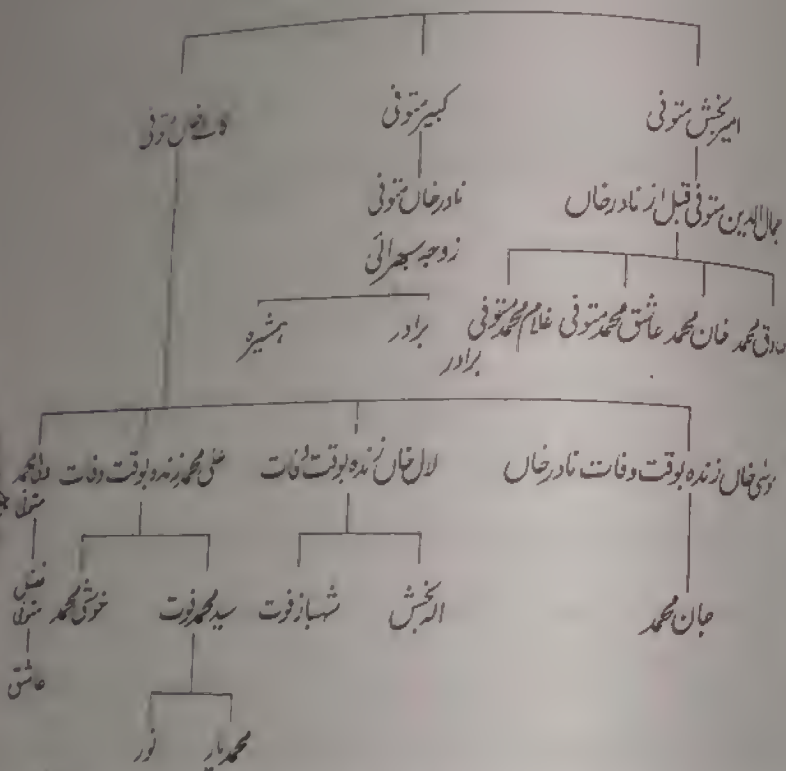 امیر بخش متوفی
کبیر متوفی
خاں متوفی
جمال الدین متوفی قبل از نادر خاں
نادر خاں متوفی
زوجہ سبھرائی
صادق محمد
خان محمد
عاشق محمد متوفی
غلام محمد متوفی
برادر
برادر
ہمشیرہ
موسیٰ خاں زندہ بوقت وفات نادر خاں
لال خاں زندہ بوقت وفات
علی محمد زندہ بوقت وفات
ولی محمد
متوفی
جان محمد
الہ بخش
شہباز فوت
سید محمد فوت
خوشی محمد
فضل
متوفی
عاشق
محمد یار
نور